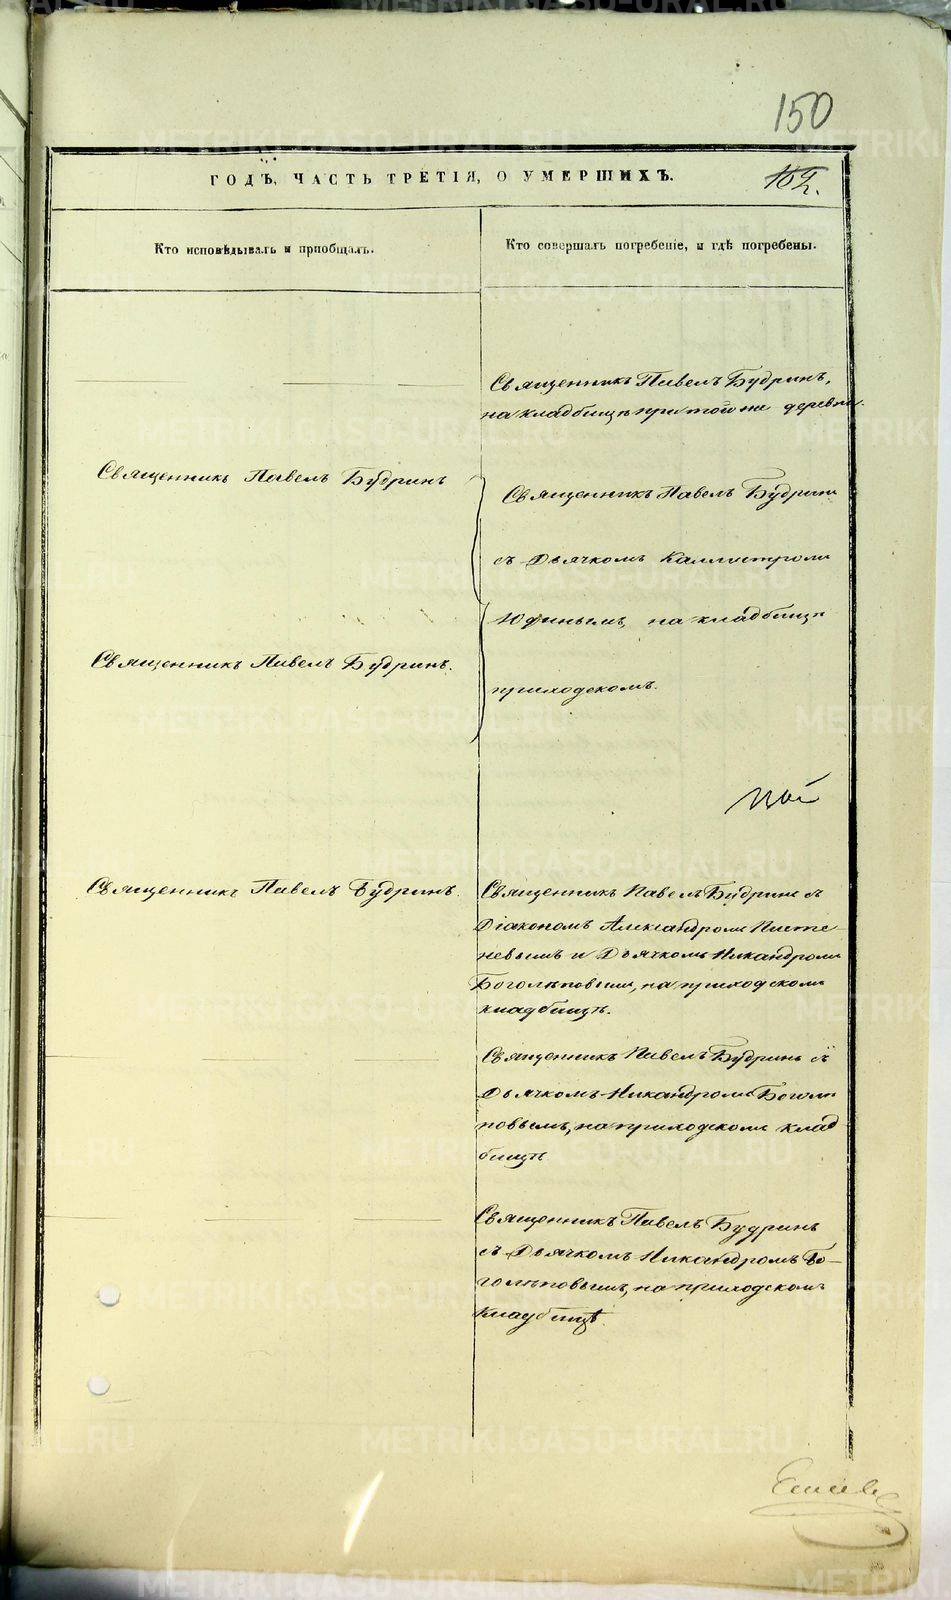 150
ГОДЪ, ЧАСТЬ ТРЕТІЯ, О УМЕРШИХЪ.
Кто исповѣдывалъ и пріобщалъ.
Кто совершалъ погребеніе, и гдѣ погребены.
Священникъ Павелъ Будринъ,
на кладбищѣ при той же деревни.
Священникъ Павелъ Будринъ
Священникъ Павелъ Будринъ
съ Дьячкомъ Каллистромъ
Юдинымъ, на кладбищѣ
Священникъ Павелъ Будринъ.
приходскомъ.
Священникъ Павелъ Будринъ.
Священникъ Павелъ Будринъ съ
Діакономъ Александромъ
невымъ и Дьячкомъ Никандромъ
Боголѣповымъ, на приходскомъ
кладбищѣ.
Священникъ Павелъ Будринъ съ
Дьячкомъ Никандромъ Боголѣ
повымъ, на приходскомъ клад
бищѣ
Священникъ Павелъ Будринъ
съ Дьячкомъ Никандромъ Бо-
голѣповымъ, на приходскомъ
кладбищѣ.
METRIKI.GASO-URAL.RU